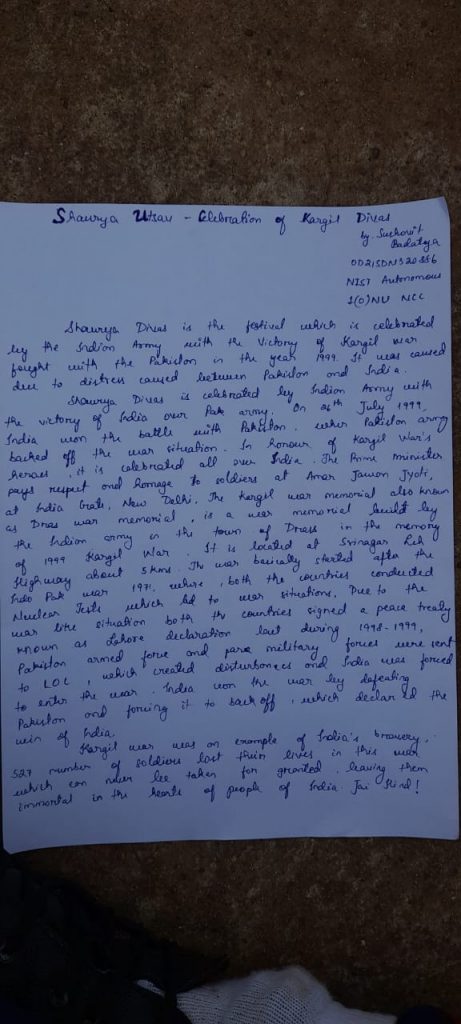 Shaurya Utsav - Celebration of Kargil Divas
by Sushovit
Badatya
NIST Autonomous
1(O)NU NCC
Shaurya Divas is the festival which is celebrated
by the Indian Army with the Victory of Kargil war
fought with the Pakistan in the year 1999. It was caused
due to distress caused between Pakistan and India.
Shaurya Divas is celebrated by Indian Army with
the victory of India over Pak army. On 26th July 1999,
India won the battle with Pakistan. when Pakistan army
backed off the war situation. In honour of Kargil War's
heroes, it is celebrated all over India. The Prime minister
pays respect and homage to soldiers at Amar Jawan Jyoti,
at India Gate, New Delhi. The Kargil war memorial also known
as Dras war memorial, is a war memorial built by
the Indian army in the town of Drass in the memory
of 1999 Kargil War. It is located at Srinagar Leh
Highway about 5kms. The war basically started after the
Indo Pak war 1971, where, both the countries conducted
Nuclear Tests which led to war situations. Due to the
war like situation both the countries signed a peace treaty
known as Lahore declaration but during 1998-1999,
Pakistan armed force and para military forces were sent
to LOC, which created disturbances and India was forced
to enter the war. India won the war by defeating
Pakistan and forcing it to back off, which declared the
win of India.
Kargil war was an example of India's bravery.
527 number of soldiers lost their lives in this war
which can never be taken for granted, leaving them
immortal in the hearts of people of India. Jai Hind!